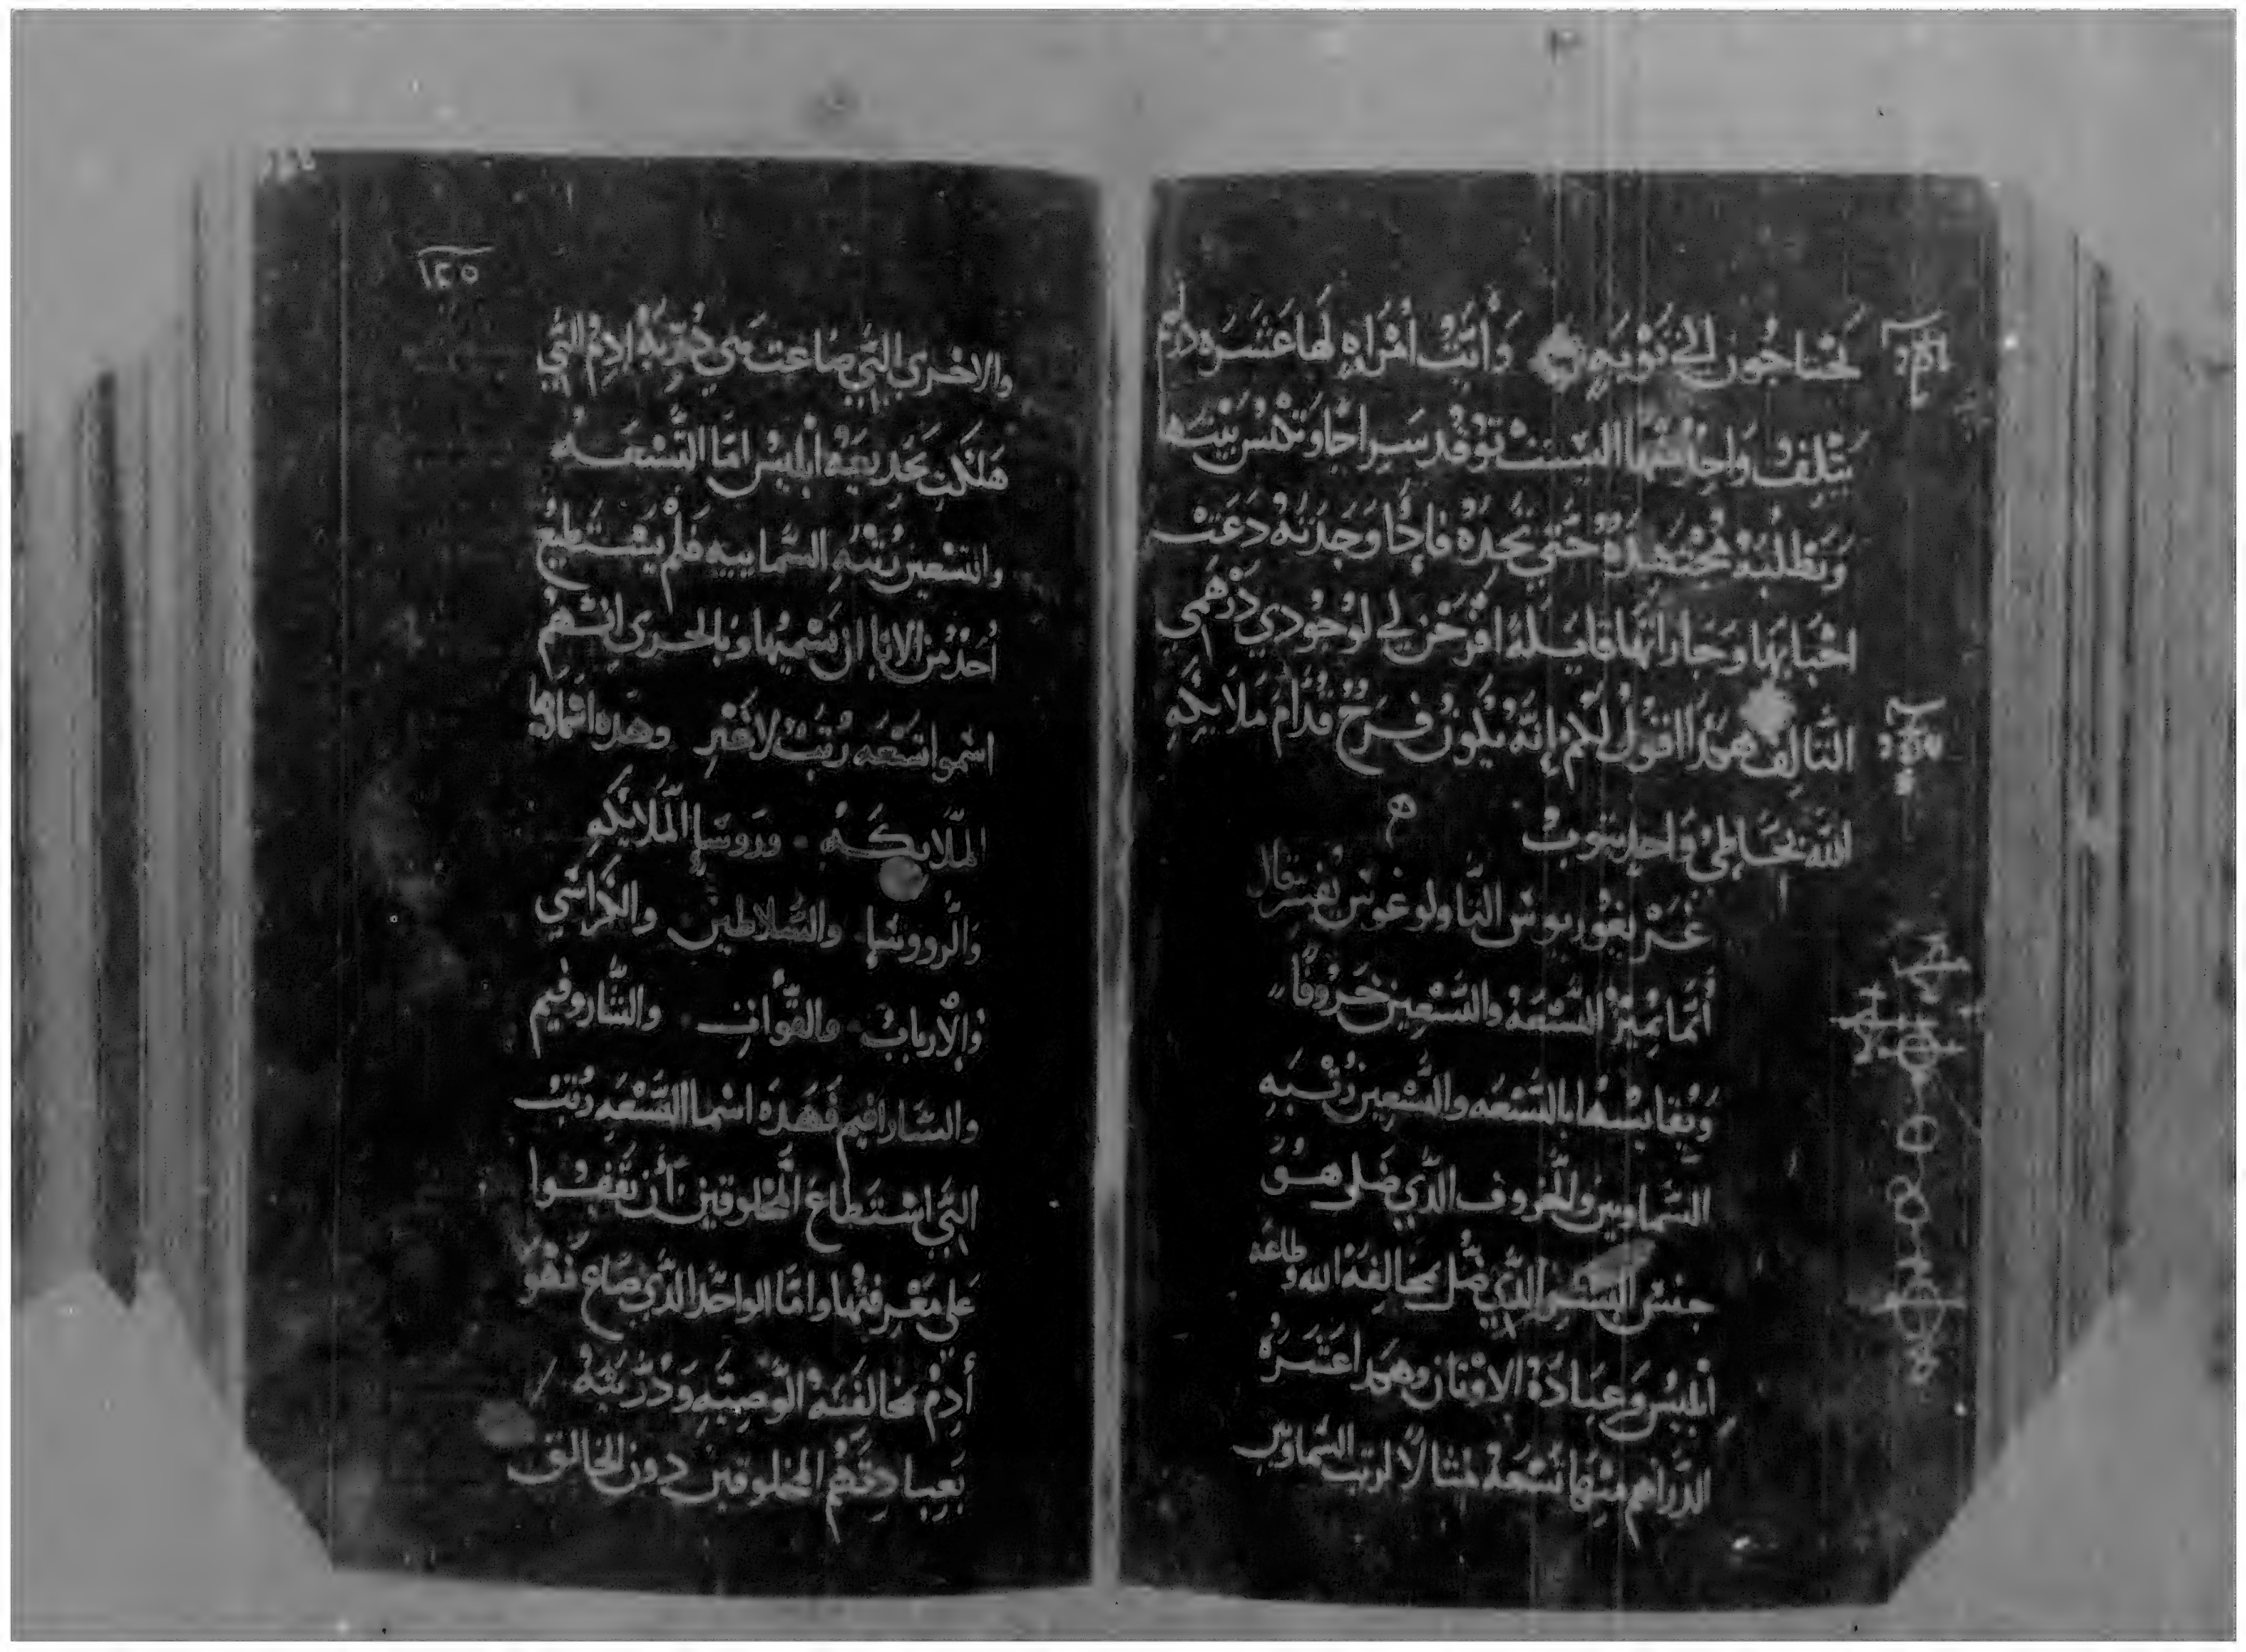 يحتاجون الي توبه وأيت أمراه لها عشره دراهم
يتلف واحد منها اليست توقد سراجا وتخس بيتها
وتطلبه مجتهده حتي تجده فاذا وجدته دعت
احبابها وجاراتها قايله افرحن لي لوجودي درهمي
التالف هكذا اقول لكم إنه يكون فرح قدام ملايكه
الله بخاطي واحد يتوب
غريغوريوس الثاولوغوس يفسر قال
أنما يميز التسعه والتسعين خروفا
ويقايسها بالتسعه والتسعين رتبه
السماويين والخروف الذي ضل هو
جنس البشر الذي ضل بمخالفة الله وطاعه
ابليس وعبادة الاوثان وهكذا عشره
الدراهم منها تسعه مثالا لرتب السماويين
١٢٥
والاخري التي ضاعت هي ذريه ادم التي
هلكت بخديعه ابليس اما التسعه
وتسعين رتبه السماييه فلم يستطيع
احد من الابا ان يسميها وبالحري انهم
اسموا تسعه رتب لا غير وهذه اسماوها
الملايكه وروسا الملايكه
والرووسا والسلاطين والكراسي
والأرباب والقوات والشاروفيم
والسارافيم فهذه اسما التسعه رتب
التي استطاع المخلوقين أن يقفوا
علي معرفتها واما الواحد الذي ضاع فهو
أدم بمخالفته الوصيه وذريته
بعبادتهم المخلوقين دون الخالق